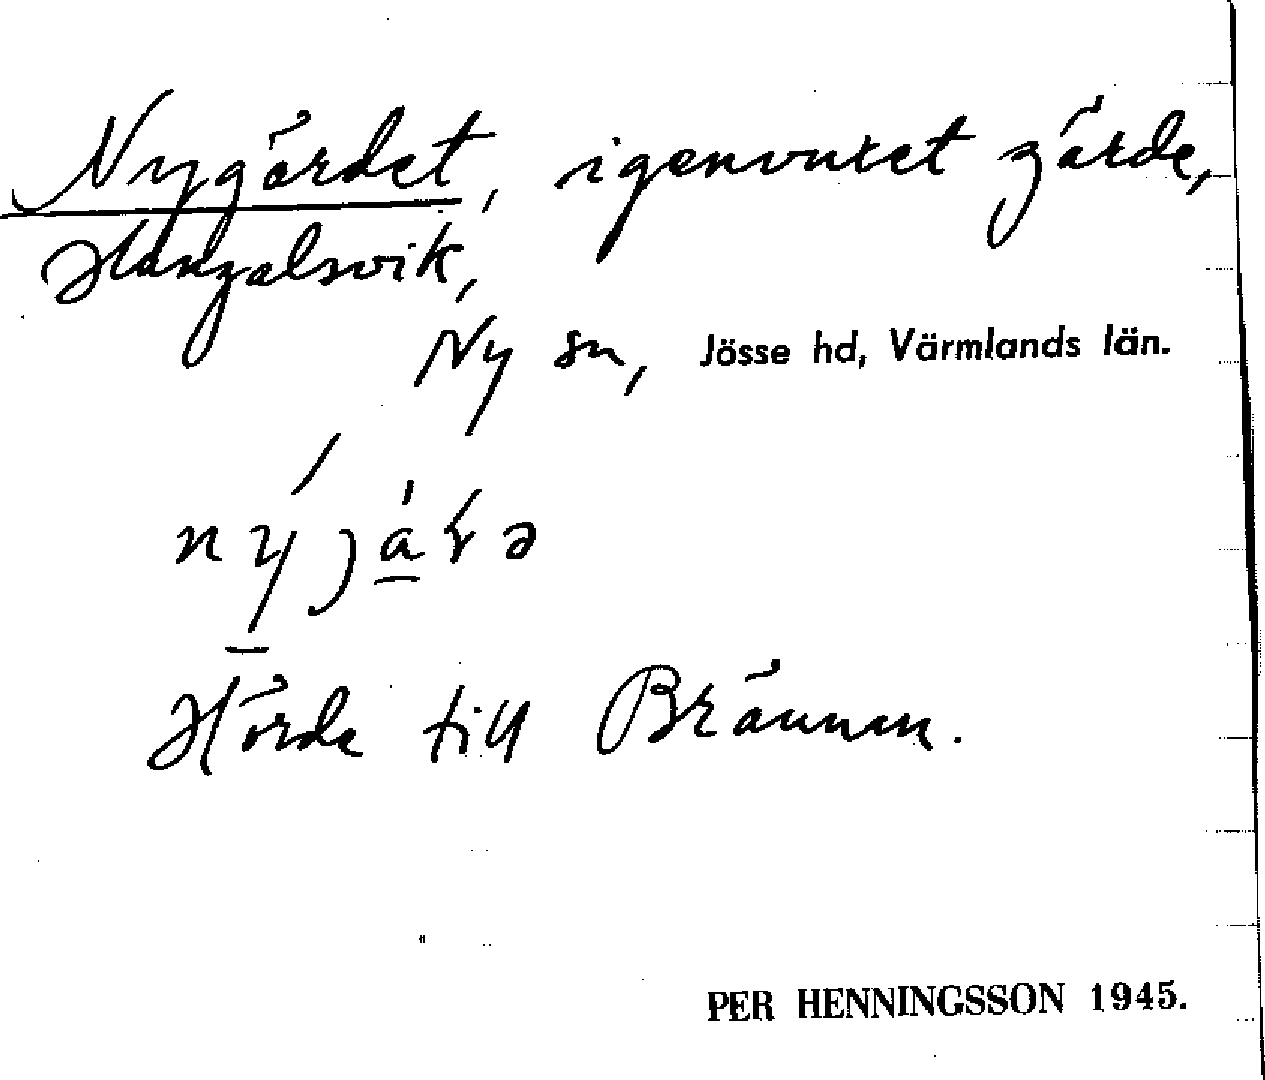 Nygärdet, igenvuxet gärde,
Hångalsvik,
Ny sn, Jösse hd, Värmlands län.
Hörde till Brännan.
PER HENNINGSSON 1945.